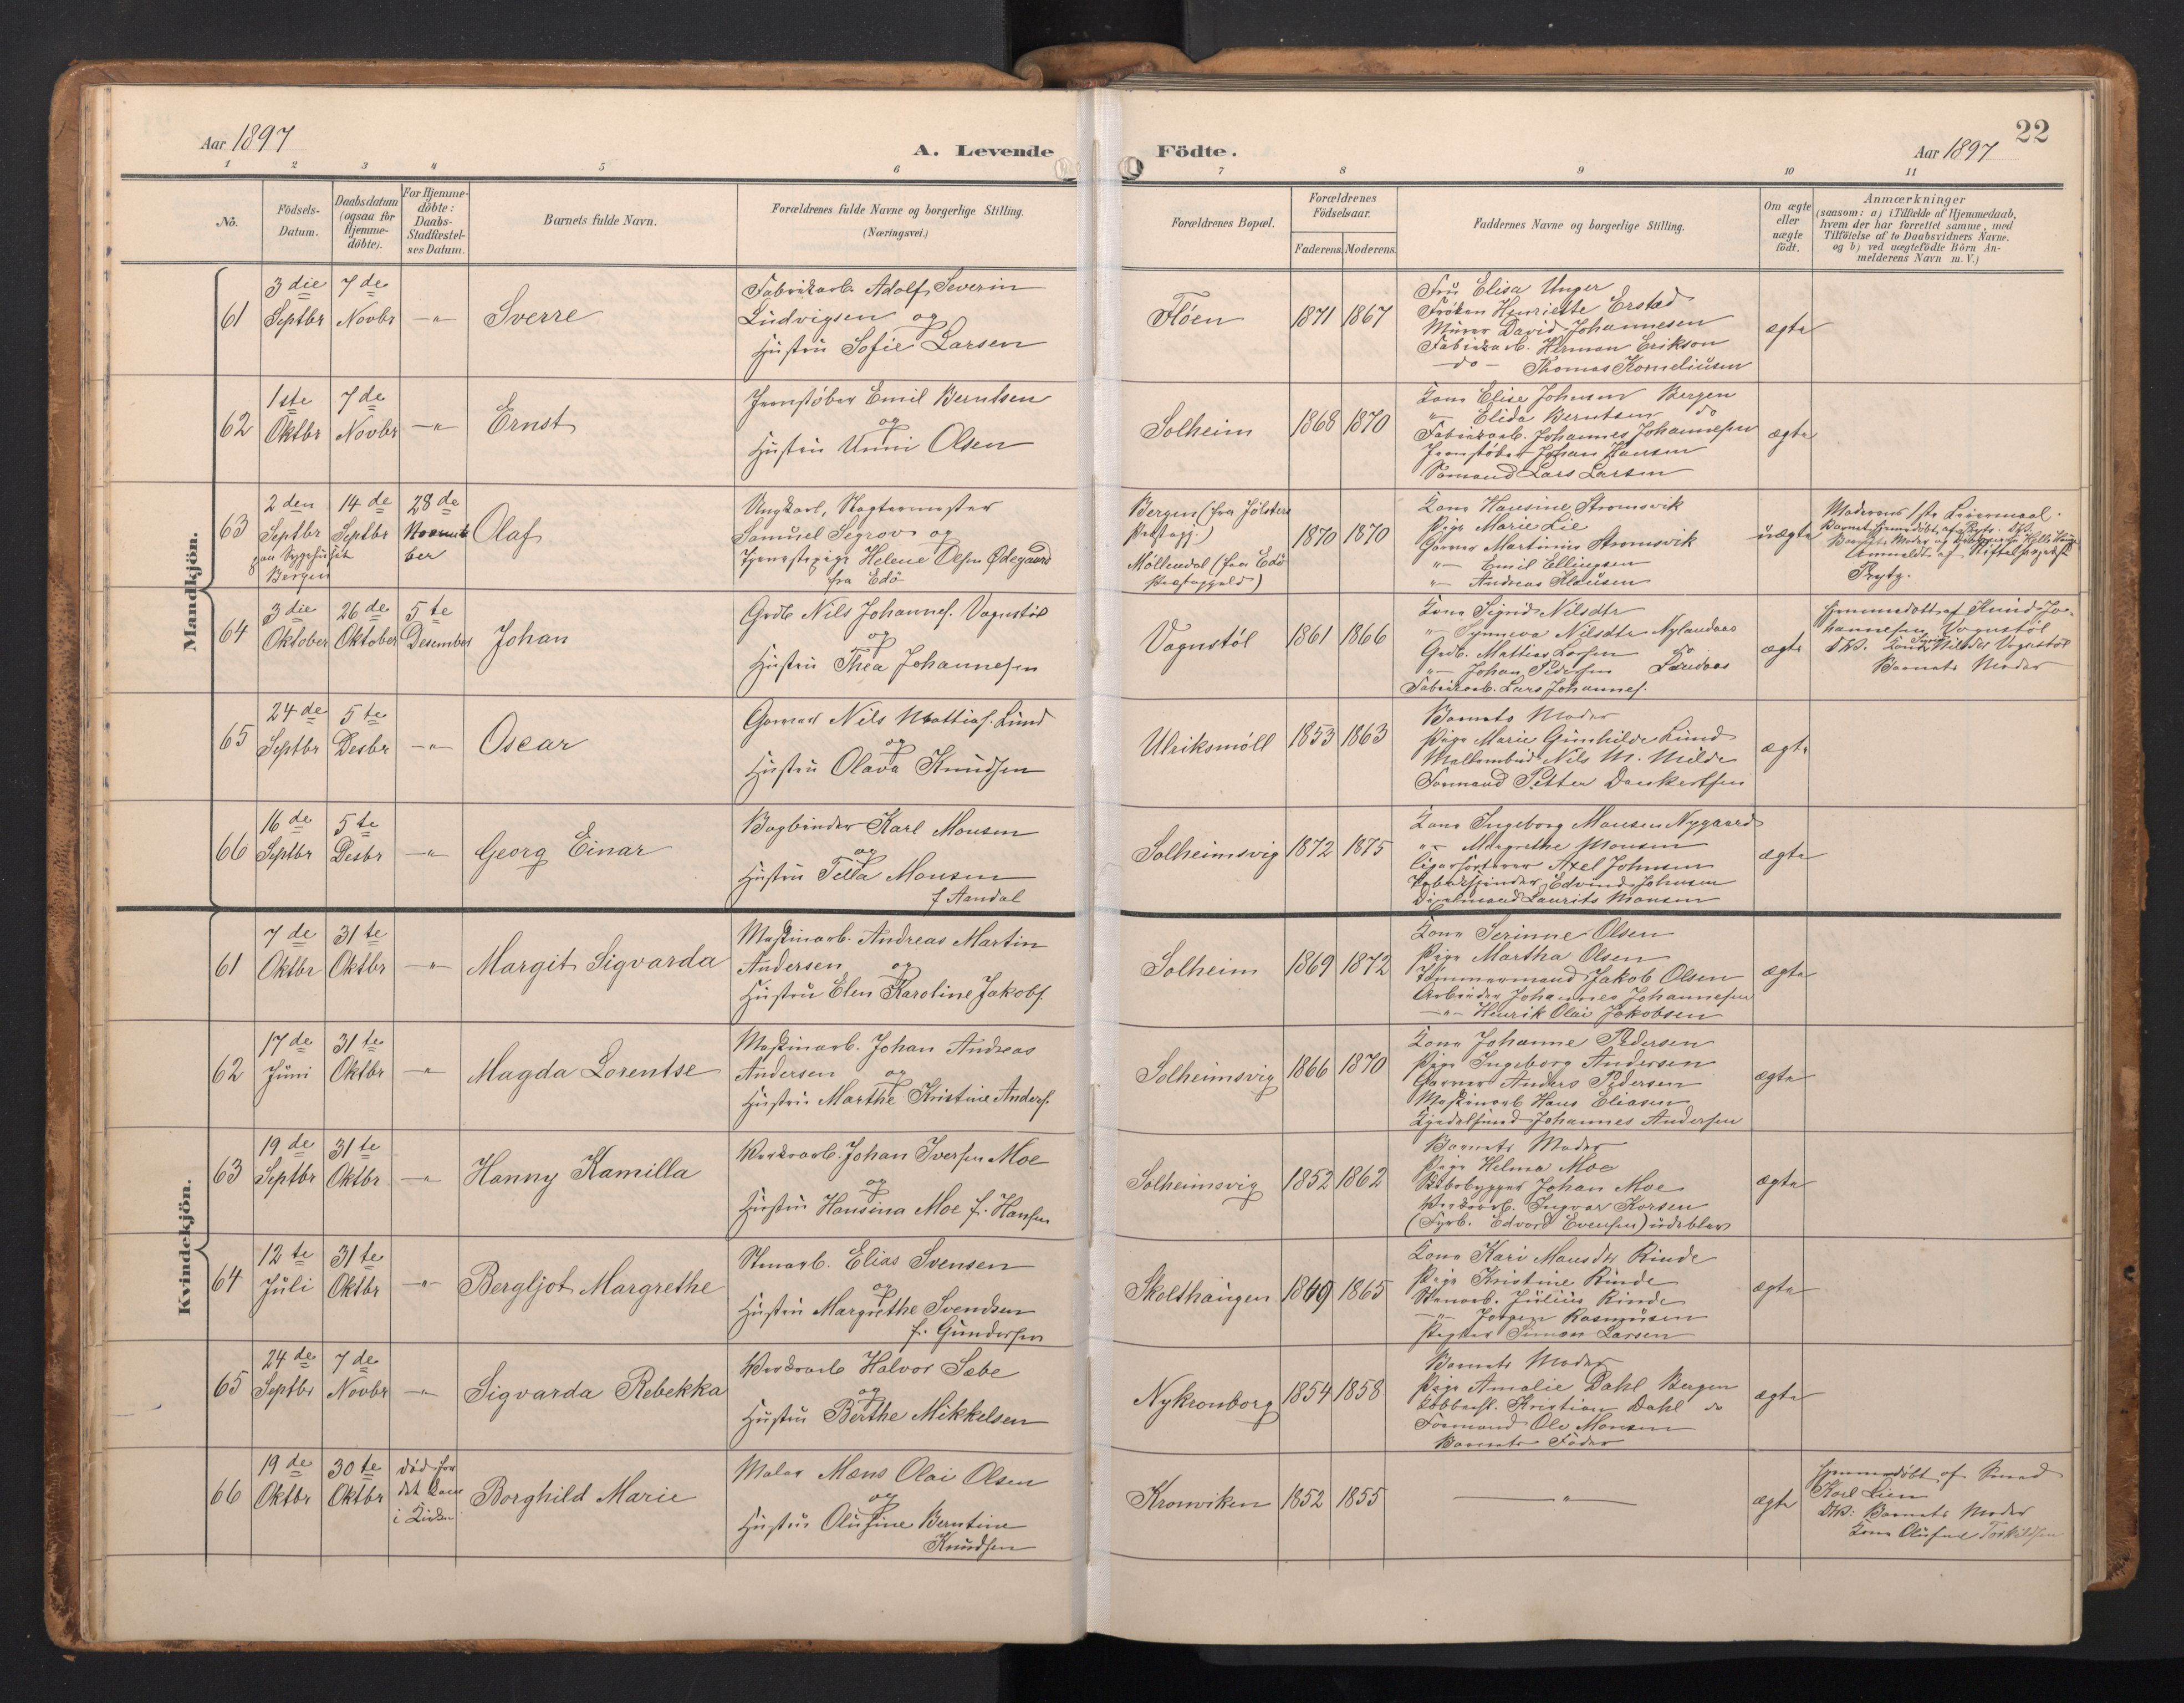 Aar 1897
A. Levende
Födte.
Aar 1897
22
1 2 3 4 5 6 7 8 9 10 11
No.
Födsels-
Datum.
Daabsdatum
(ogsaa for
Hjemme-
döbte).
For Hjemme-
döbte:
Daabs-
Stadfæstel-
ses Datum.
Barnets fulde Navn.
Forældrenes fulde Navne og borgerlige Stilling.
(Næringsvei.)
Forældrenes Bopæl.
Forældrenes
Födselsaar.
Faderens. Moderens.
Faddernes Navne og borgerlige Stilling.
Om ægte
eller
uægte
födt.
Anmærkninger
(saasom: a) i Tilfælde af Hjemmedaab,
hvem der har forrettet samme, med
Tilföielse af to Daabsvidners Navne.
og b) ved uægtefödte Börn An-
melderens Navn m. V.)
Mandkjön.
61
3die Septbr
7de Novbr
-"-
Sverre
Fabrikarb. Adolf Severin
Ludvigsen og
Hustru Sofie Larsen
Flöen
1871 1867
Fru Elisa Unger
Fröken Henriette Erstad
Murer David Johannesen
Fabrikarb. Herman Erikson
-do- Thomas Korneliusen
ægte
62
1ste Oktbr
7de Novbr
-"-
Ernst
Jernstöber Emil Berntsen
og
Hustru Unni Olsen
Solheim
1868 1870
Kone Elise Johnsen Bergen
" Elida Berntsen do
Fabrikarb. Johannes Johannesen
Jernstöber Johan Hansen
Sömand Lars Larsen
ægte
63
2den Septbr
paa Sygehuset
Bergen
14de Septbr
28de Novem
ber
Olaf
Ungkarl, Slagtermester
Samuel Segrov og
Tjenestepige Helene Olsen Ødegaard
fra Edö
Bergen (fra Jölster
Præstegj.)
Möllendal (fra Edö
præstegjeld)
1870 1870
Kone Hansine Strömsvik
Pige Marie Lie
Garver Martinius Strömsvik
"- Emil Ellingsen
"- Andreas Klausen
uægte
Moderens 1ste Leiermaal.
Prytz.
64
3die Oktober
26de Oktober
5te Desember
Johan
Grdb. Nils Johannes. Vognstöl
og
Hustru Thea Johannesen
Vognstöl
1861 1866
Kone Sigrid Nilsdtr
"- Synneva Nilsdtr Nylandaas
Grdb. Mathias Larsen
"- Johan Pedersen Landaas
Fabrikarb. Lars Johannes.
ægte
Hjemmedöbt af Knud Jo-
hannesen Vognstöl
Barnets Moder
65
24de Septbr
5te Desbr
-"-
Oscar
Garver Nils Mathias. Lund
og
Hustru Olava Knudsen
Ulriksmöll
1853 1863
Barnets Moder
Pige Marie Gunhilde Lund
Nils M. Milde
Formand Petter
ægte
66
16de Septbr
5te Desbr
-"-
Georg Einar
Bogbinder Karl Monsen
og
Hustru Tilla Monsen
f. Aandal
Solheimsvig
1872 1875
Kone Ingeborg Monsen Nygaard
"- Margrethe Monsen
Cigarsorterer Axel Johnsen
Edvind Johnsen
Laurits Monsen
ægte
Kvindekjön.
61
7de Oktbr
31te Oktbr
-"-
Margit Sigvarda
Maskinarb. Andreas Martin
Andersen og
Hustru Elen Karoline Jakobs.
Solheim
1869 1872
Kone Serinne Olsen
Pige Martha Olsen
Tömmermand Jakob Olsen
Arbeider Johannes Johannesen
-"- Henrik Olai Jakobsen
ægte
62
17de Juni
31te Oktbr
-"-
Magda Lorentse
Maskinarb. Johan Andreas
Andersen og
Hustru Marthe Kristine Anders.
Solheimsvig
1866 1870
Kone Johanne Pedersen
Pige Ingeborg Andersen
Garver Anders Pedersen
Maskinarb Hans Eliasen
Kjedelsmed Johannes Andersen
ægte
63
19de Septbr
31te Oktbr
-"-
Hanny Kamilla
Værksarb. Johan Iversen Moe
og
Hustru Hansina Moe f. Hansen
Solheimsvig
1852 1862
Barnets Moder
Pige Helma Moe
Skibsbygger Johan Moe
Værksarb. Ingvar Korsen
(Fyrb. Edvard Evensen) udeblev
ægte
64
12te Juli
31te Oktbr
-"-
Bergljot Margrethe
Stenarb. Elias Svensen
og
Hustru Margrethe Svendsen
f. Gundersen
Skolthaugen
1869 1865
Kone Kari Monsdtr Rinde
Pige Kristine Rinde
Stenarb. Julius Rinde
-"- Jörgen Rasmusen
Simon Larsen
ægte
65
24de Septbr
7de Novbr
-"-
Sigvarda Rebekka
Værksarb Halvor Sæbe
og
Hustru Berthe Mikkelsen
Nykronborg
1854 1858
Barnets Moder
Pige Amalie Dahl Bergen
Kobbersl. Kristian Dahl do
Formand Ole Monsen
Barnets Fader
ægte
66
19de Oktbr
30te Oktbr
död för
det kom
i Kirken
Borghild Marie
Maler Mons Olai Olsen
og
Hustru Olufine Berntine
Knudsen
Kronviken
1852 1855
-"-
ægte
Hjemmedöbt af Smed
Karl Lien
DV: Barnets Moder
Kone Olufine Torkildsen